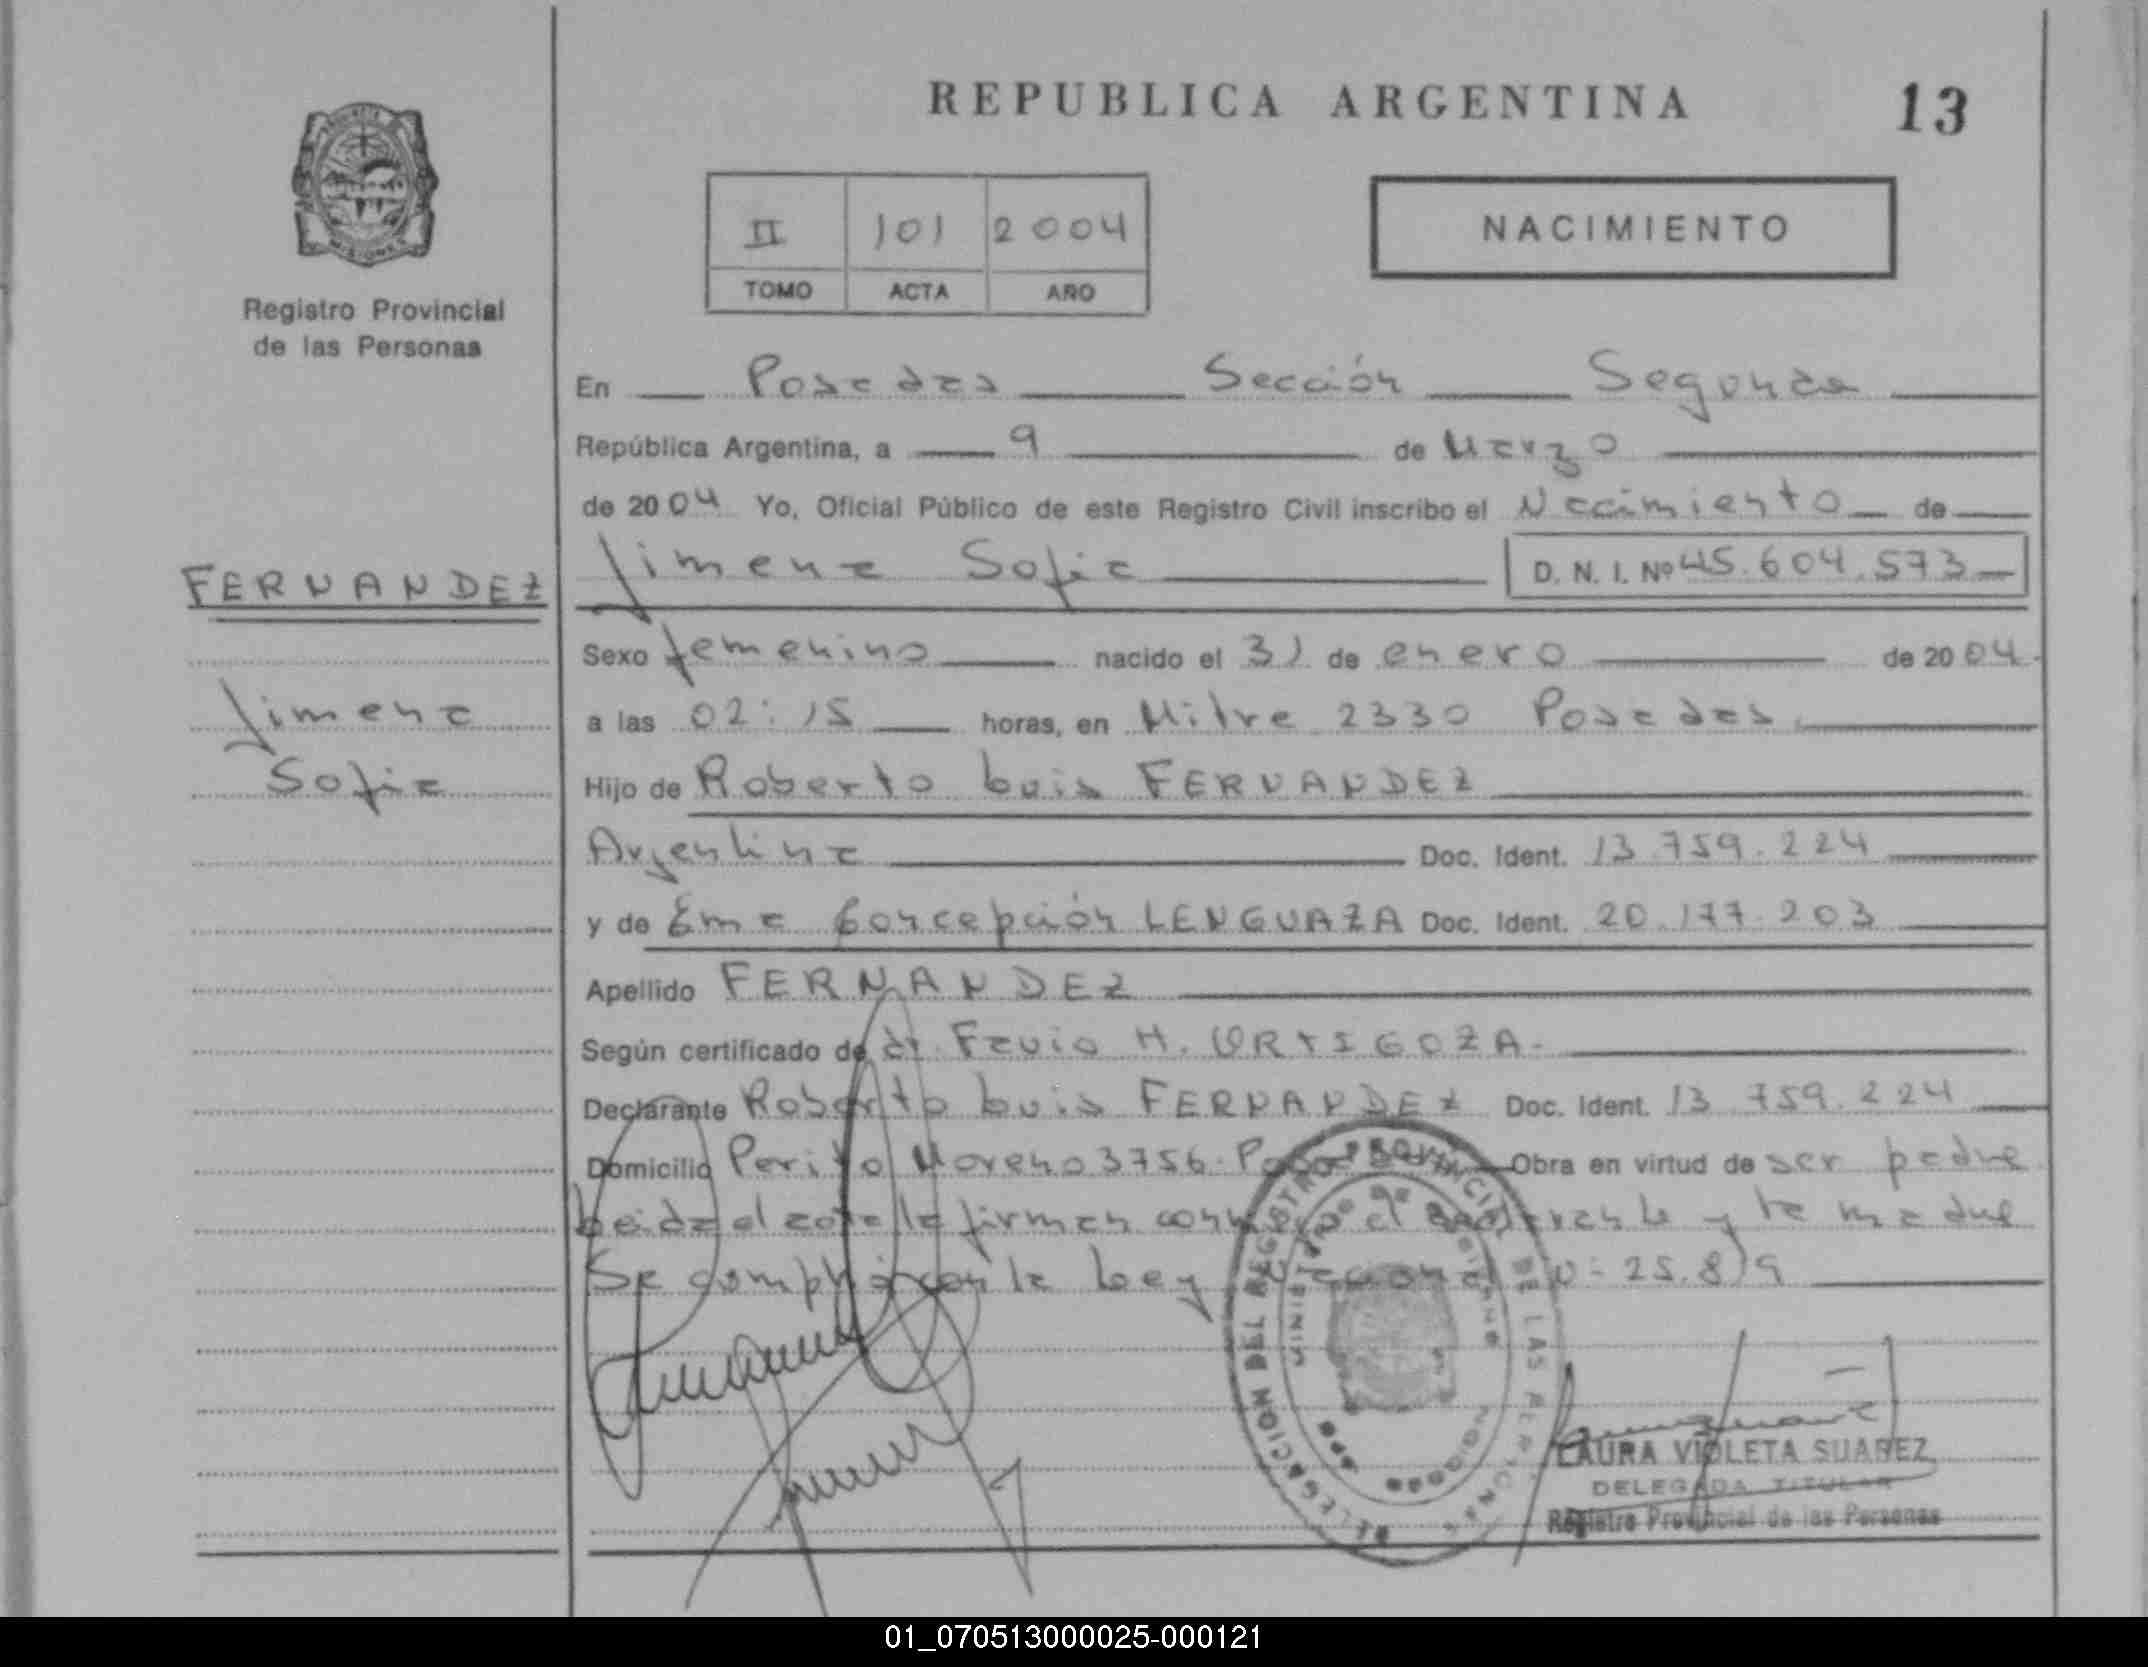 REPUBLICA ARGENTINA 13
II 101 2004
TOMO ACTA AÑO
NACIMIENTO
Registro Provincial
de las Personas
En Posadas Sección Segunda
República Argentina, a 9 de Marzo
de 2004 Yo, Oficial Público de este Registro Civil inscribo el Nacimiento de
FERNANDEZ
Jimena
Sofia
Jimena Sofia D. N. I. Nº 45.604.573
Sexo femenino nacido el 31 de enero de 2004
a las 02:15 horas, en Mitre 2330 Posadas.
Hijo de Roberto Luis FERNANDEZ
Argentina Doc. Ident. 13.759.224
y de Ema Concepción LENGUAZA Doc. Ident. 20.177.203
Apellido FERNANDEZ
Según certificado de dr. Favio H. ORTIGOZA.
Declarante Roberto Luis FERNANDEZ Doc. Ident. 13.759.224
Domicilio Perito Moreno 3756. Obra en virtud de ser padre
Leida el acta la firman conmigo el declarante y la madre
Se cumplió con la Ley Nacional Nº 25.819
DELEGACION DEL REGISTRO PROVINCIAL DE LAS PERSONAS
MINISTERIO DE GOBIERNO
LAURA VIOLETA SUAREZ
DELEGADA TITULAR
Registro Provincial de las Personas
01_070513000025-000121